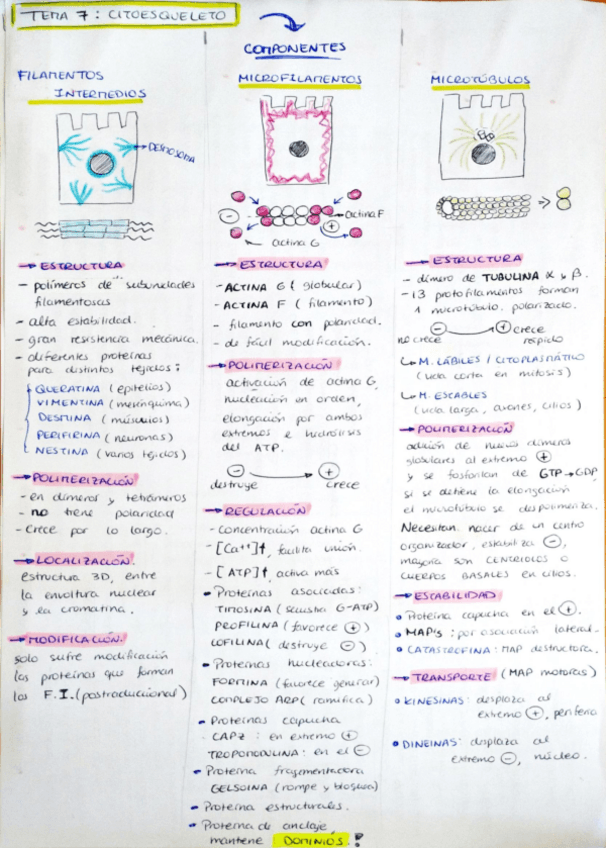 TEMA 7: CITOESQUELETO
COMPONENTES
FILAMENTOS
INTERMEDIOS
DESMOSOMA
→ ESTRUCTURA
- polímeros de subunidades
filamentosas
- alta estabilidad.
- gran resistencia mecánica.
- diferentes proteínas
para distintos tejidos:
QUERATINA (epitelios)
VIMENTINA (mesénquima)
DESMINA (músculos)
PERIFIRINA (neuronas)
NESTINA (varios tejidos)
→ POLIMERIZACIÓN
- en dímeros y tetrámeros
- no tiene polaridad
- Crece por lo largo.
→ LOCALIZACIÓN.
estructura 3D, entre
la envoltura nuclear
y la cromatina.
→ MODIFICACIÓN.
solo sufre modificación
las proteínas que forman
los F.I. (postraduccional)
MICROFILAMENTOS
- actina F
+
actina G
→ ESTRUCTURA
- ACTINA G (globular)
- ACTINA F (filamento)
- filamento con polaridad.
- de fácil modificación.
→ POLIMERIZACIÓN
activación de actina G,
nucleación en orden,
elongación por ambos
extremos e hidrólisis
del ATP.
- → +
destruye crece
→ REGULACIÓN
- Concentración actina G
- [Ca++]↑, facilita unión.
- [ATP]↑, activa más
• Proteínas asociadas:
TIMOSINA (secuestra G-ATP)
PROFILINA (favorece +)
COFILINA (destruye -)
• Proteínas nucleadoras:
FORMINA (favorece generar)
COMPLEJO ARP (ramifica)
• Proteínas capucha
- CAPZ : en extremo +
TROPOMODULINA: en el -
• Proteína fragmentadora
GELSOINA (rompe y bloquea)
• Proteína estructurales.
• Proteína de anclaje,
mantiene DOMINIOS.
MICROTÚBULOS
→ ESTRUCTURA
- dímero de TUBULINA α y β.
- 13 protofilamentos forman
1 microtúbulo. polarizado.
- → + crece
no crece rápido
↳ M. LÁBILES / CITOPLASMÁTICO
(vida corta en mitosis)
↳ M. ESTABLES
(vida larga, axones, cilios)
→ POLIMERIZACIÓN
adición de nuevos dímeros
globulares al extremo +
y se fosforilan de GTP→GDP
si se detiene la elongación
el microtúbulo se despolimeriza.
Necesitan nacer de un centro
organizador, estabiliza -,
mayoría son CENTRIOLOS O
CUERPOS BASALES en cilios.
→ ESTABILIDAD
• Proteína capucha en el +.
• MAP's : por asociación lateral.
• CATASTROFINA: MAP destructora.
→ TRANSPORTE (MAP motoras)
• KINESINAS: desplaza al
extremo +, periferia
• DINEINAS: desplaza al
extremo -, núcleo.